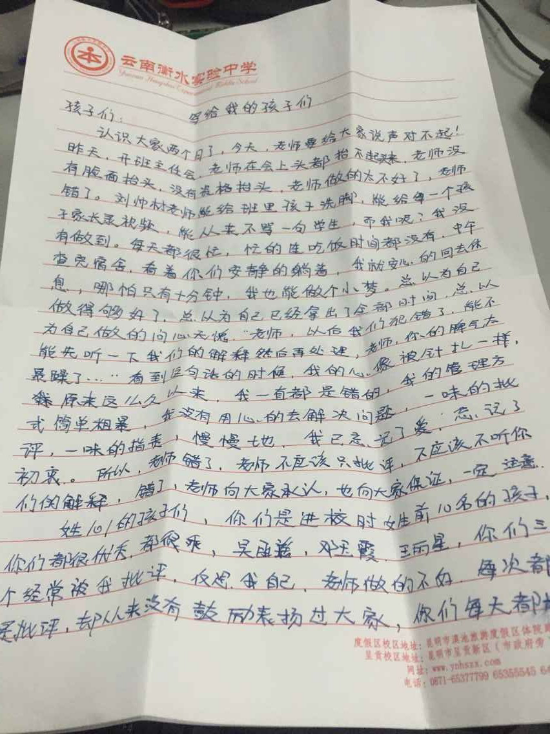 云南衡水实验中学
Yunnan Hengshui Experimental Middle School
写给我的孩子们
孩子们:
认识大家两个月了,今天,老师要给大家说声对不起!
昨天,开班主任会,老师在会上头都抬不起来,老师没
有脸面抬头,没有资格抬头,老师做的太不好了,老师
错了。刘仲材老师能给班里孩子洗脚,能给每一个孩
子家长录视频,能从来不骂一句学生,而我呢?我没
有做到。每天都很忙,忙的连吃饭时间都没有,中午
查完宿舍,看着你们安静的躺着,我就安心的回去休
息,哪怕只有十分钟,我也能做个小梦。总认为自己
做得够好了,总认为自己已经拿出了全部时间,总认
为自己做的问心无愧。"老师,以后我们犯错了,能不
能先听一下我们的解释然后再处理,老师,你的脾气太
暴躁了…"看到这句话的时候,我的心像被针扎一样,
原来这么久以来,我一直都是错的,我的管理方
式简单粗暴,我没有用心的去解决问题,一味的批
评,一味的指责,慢慢地,我已忘记了爱,忘记了
初衷。所以,老师错了,老师不应该只批评,不应该不听你
们的解释,错了,老师向大家承认,也向大家保证,一定注意。
女生101的孩子们,你们是进校时女生前10名的孩子,
你们都很优秀,都很乖,王丽星,你们三
个经常被我批评,反思我自己,老师做的不好,每次都
是批评,却从来没有鼓励表扬过大家,你们每天都
度假区校区地址:昆明市滇池旅游度假区体院
呈贡校区地址:昆明市呈贡新区(市政府旁
网址:www.ynhszx.com
电话:0871-65377799 65355545